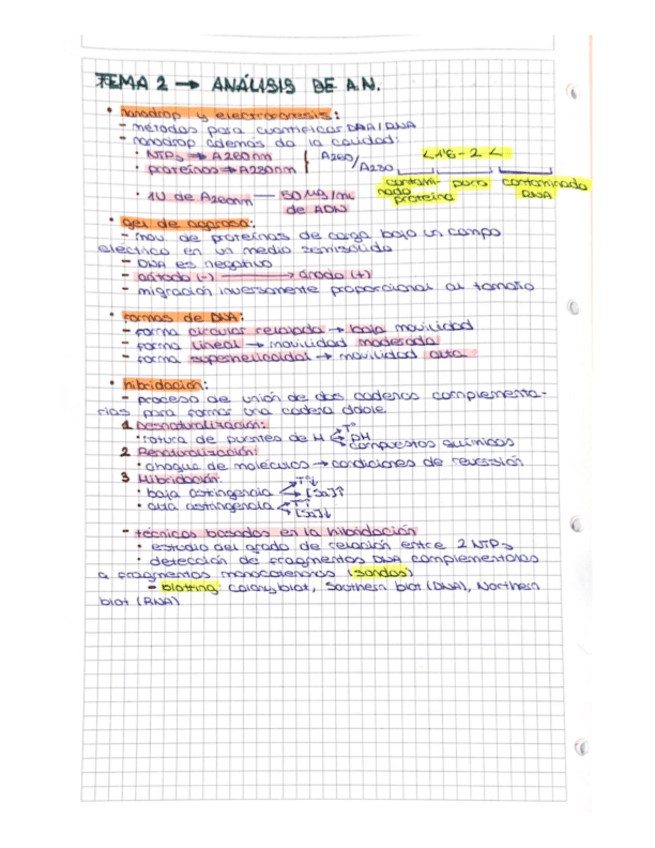 TEMA 2 → ANÁLISIS DE A.N.
• nanodrop y electroforesis:
- métodos para cuantificar DNA/RNA
- nanodrop además da la calidad:
• NTPs → A260nm } A260/A280 <1'6-2<
• proteínas → A280nm contaminado proteína puro contaminado RNA
• 1U de A260nm — 50 µg/mL de ADN
• gel de agarosa:
- mov. de proteínas de carga bajo un campo
eléctrico en un medio semisólido
- DNA es negativo
- cátodo (-) → ánodo (+)
- migración inversamente proporcional al tamaño
• formas de DNA:
- forma circular relajada → baja movilidad
- forma lineal → movilidad moderada
- forma superhelicoidal → movilidad alta
• hibridación:
- proceso de unión de dos cadenas complementa-
rias para formar una cadena doble
1 Desnaturalización:
• rotura de puentes de H T° pH compuestos químicos
2 Renaturalización:
• choque de moléculas → condiciones de reversión
3 Hibridación
• baja astringencia T°↓ [Sa]↑
• alta astringencia T°↑ [Sa]↓
- técnicas basadas en la hibridación
• estudio del grado de relación entre 2 NTPs
• detección de fragmentos DNA complementarios
a fragmentos monocatenarios (sondas)
- blotting: colony blot, Southern blot (DNA), Northern
blot (RNA)